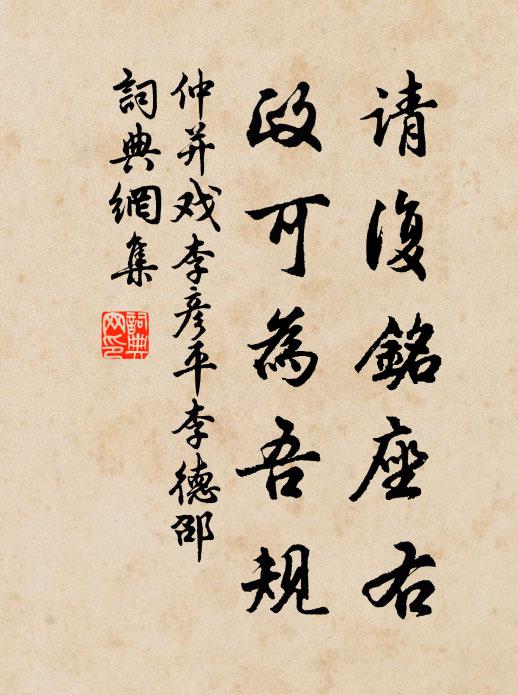 请复銘座右
政可為吾规
仲并戏李彦平李德邵
詞典網集
詞典網印